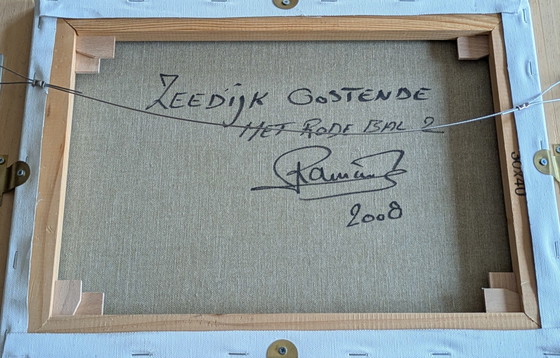 ZEEDIJK OOSTENDE
HET RODE BAL 2
2008
30x40